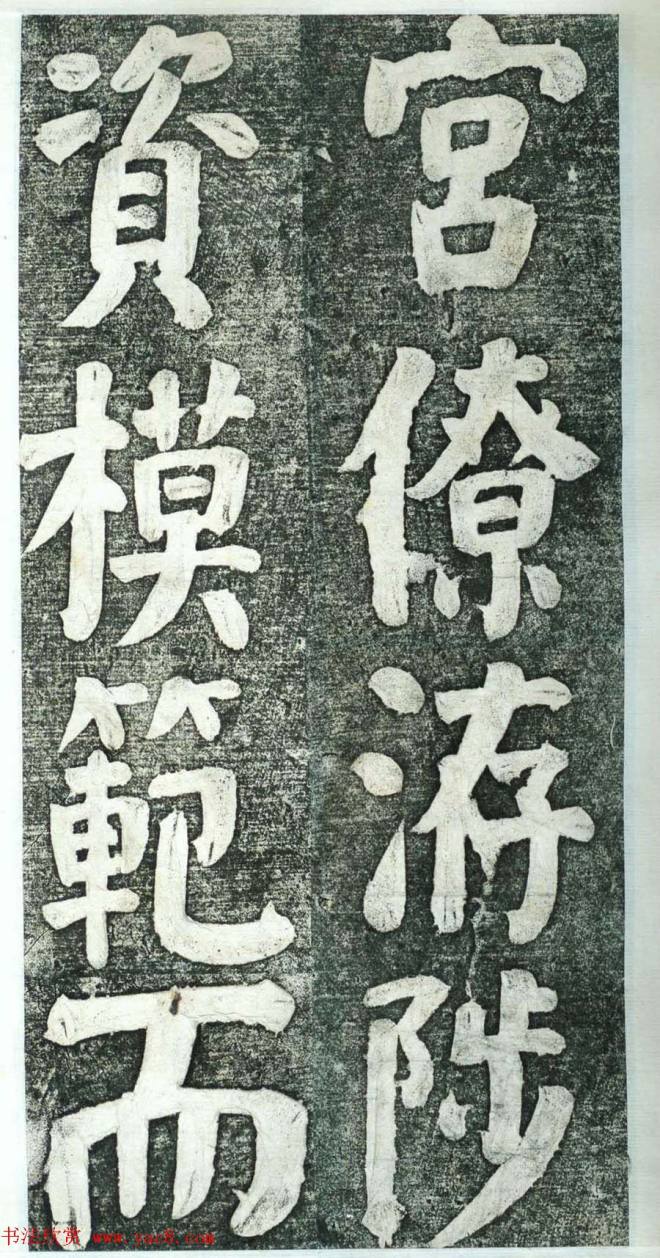 宮僚洊陟
資模範而
书法欣赏 www.yac8.com